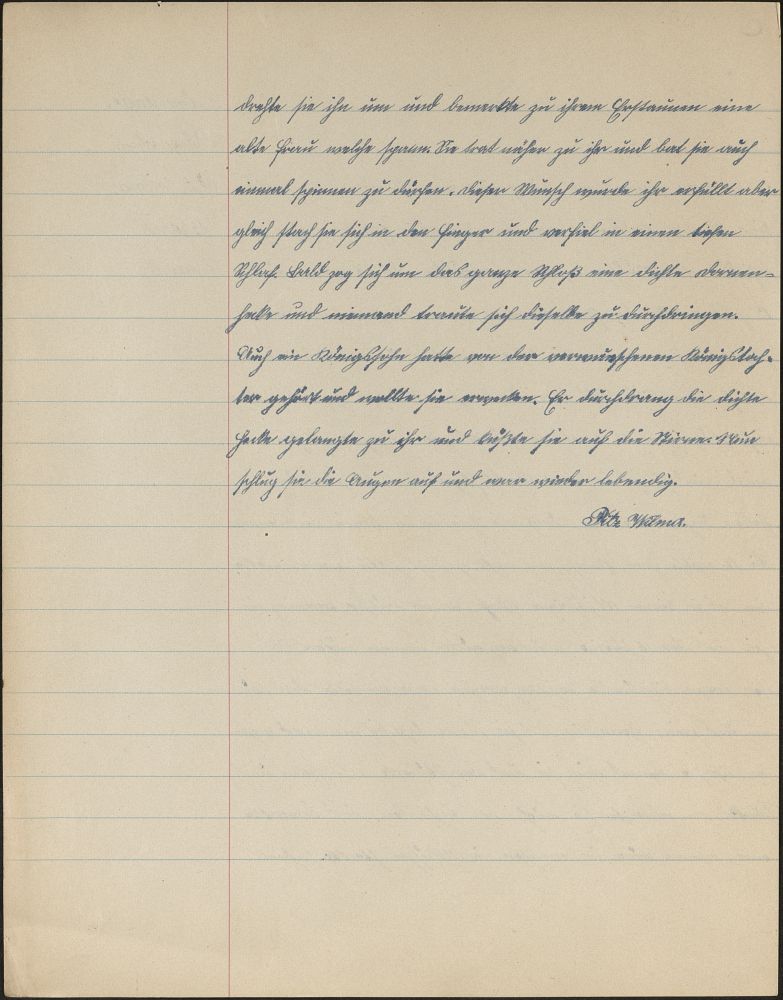 drehte sie ihn um und bemerkte zu ihrem Erstaunen eine
alte Frau welche spann. Sie trat näher zu ihr und bat sie auch
einmal spinnen zu dürfen. Dieser Wunsch wurde ihr erfüllt aber
gleich stach sie sich in den Finger und verfiel in einen tiefen
Schlaf. Bald zog sich um das ganze Schloß eine dichte Dornen-
hecke und niemand traute sich dieselbe zu durchdringen.
Auch ein Königssohn hatte von der verwunschenen Königstoch-
ter gehört und wollte sie erwecken. Er durchdrang die dichte
Hecke gelangte zu ihr und küßte sie auf die Stirne. Nun
schlug sie die Augen auf und war wieder lebendig.